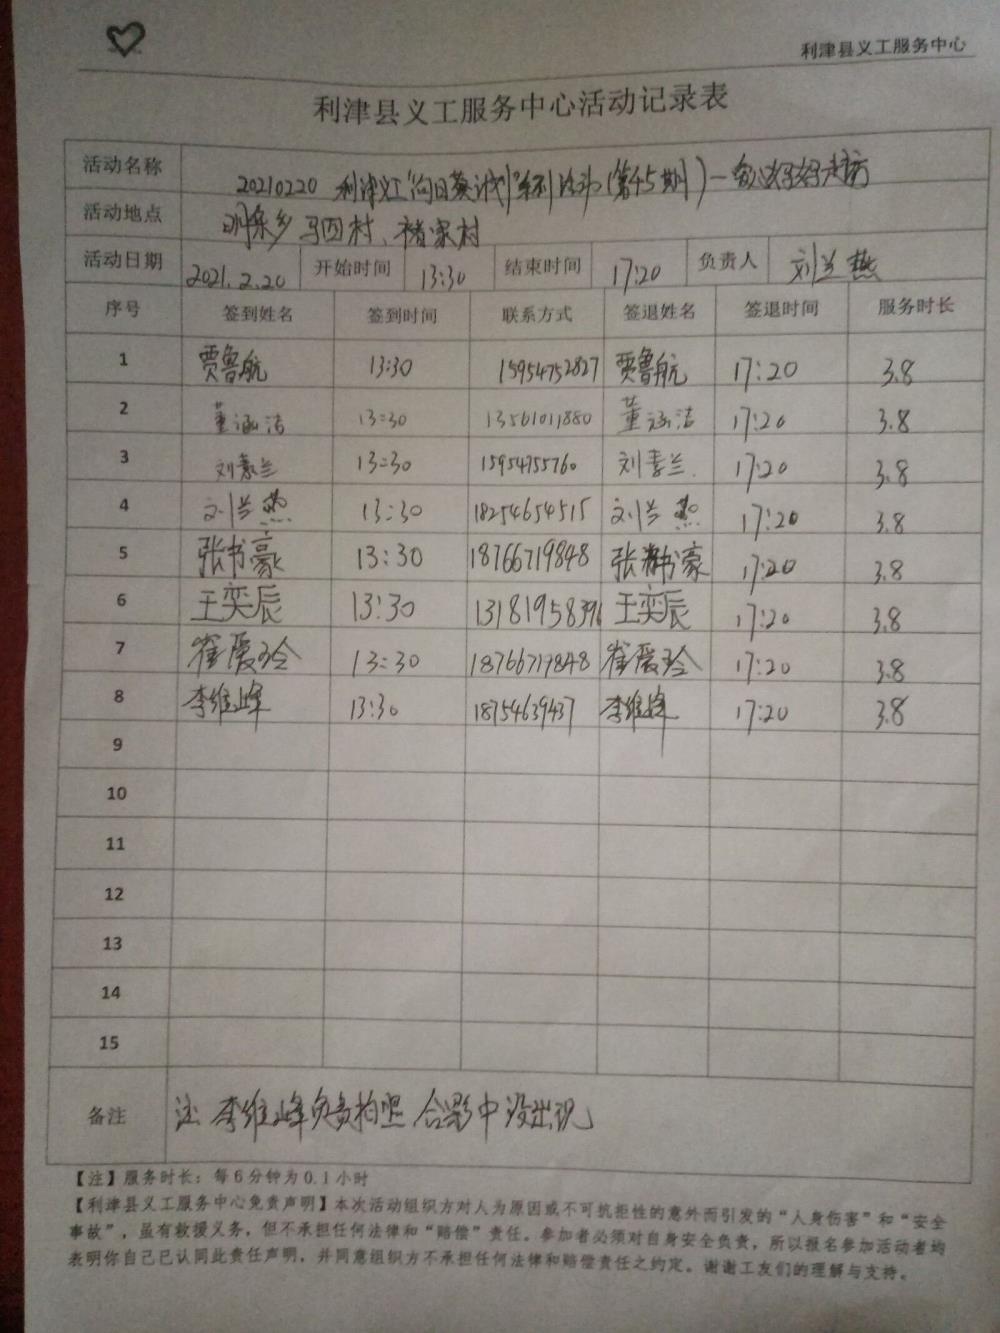 利津县义工服务中心
利津县义工服务中心活动记录表
活动名称 20210220 利津义工"向日葵计划"系列活动(第45期)一
活动地点 明集乡 马四村、褚家村
活动日期 2021.2.20 开始时间 13:30 结束时间 17:20 负责人 刘兰燕
序号 签到姓名 签到时间 联系方式 签退姓名 签退时间 服务时长
1 贾鲁航 13:30 15954752827 贾鲁航 17:20 3.8
2 董涵洁 13:30 13561011880 董涵洁 17:20 3.8
3 刘素兰 13:30 15954755760 刘素兰 17:20 3.8
4 刘兰燕 13:30 18254654515 刘兰燕 17:20 3.8
5 张书豪 13:30 18766719848 张书豪 17:20 3.8
6 王奕辰 13:30 13181958396 王奕辰 17:20 3.8
7 崔爱玲 13:30 18766719848 崔爱玲 17:20 3.8
8 李维峰 13:30 18754639437 李维峰 17:20 3.8
9
10
11
12
13
14
15
备注 注 李维峰负责拍照 合影中没出现
【注】服务时长：每6分钟为0.1小时
【利津县义工服务中心免责声明】本次活动组织方对人为原因或不可抗拒性的意外而引发的“人身伤害”和“安全
事故”，虽有救援义务，但不承担任何法律和“赔偿”责任。参加者必须对自身安全负责，所以报名参加活动者均
表明你自己已认同此责任声明，并同意组织方不承担任何法律和赔偿责任之约定。谢谢工友们的理解与支持。